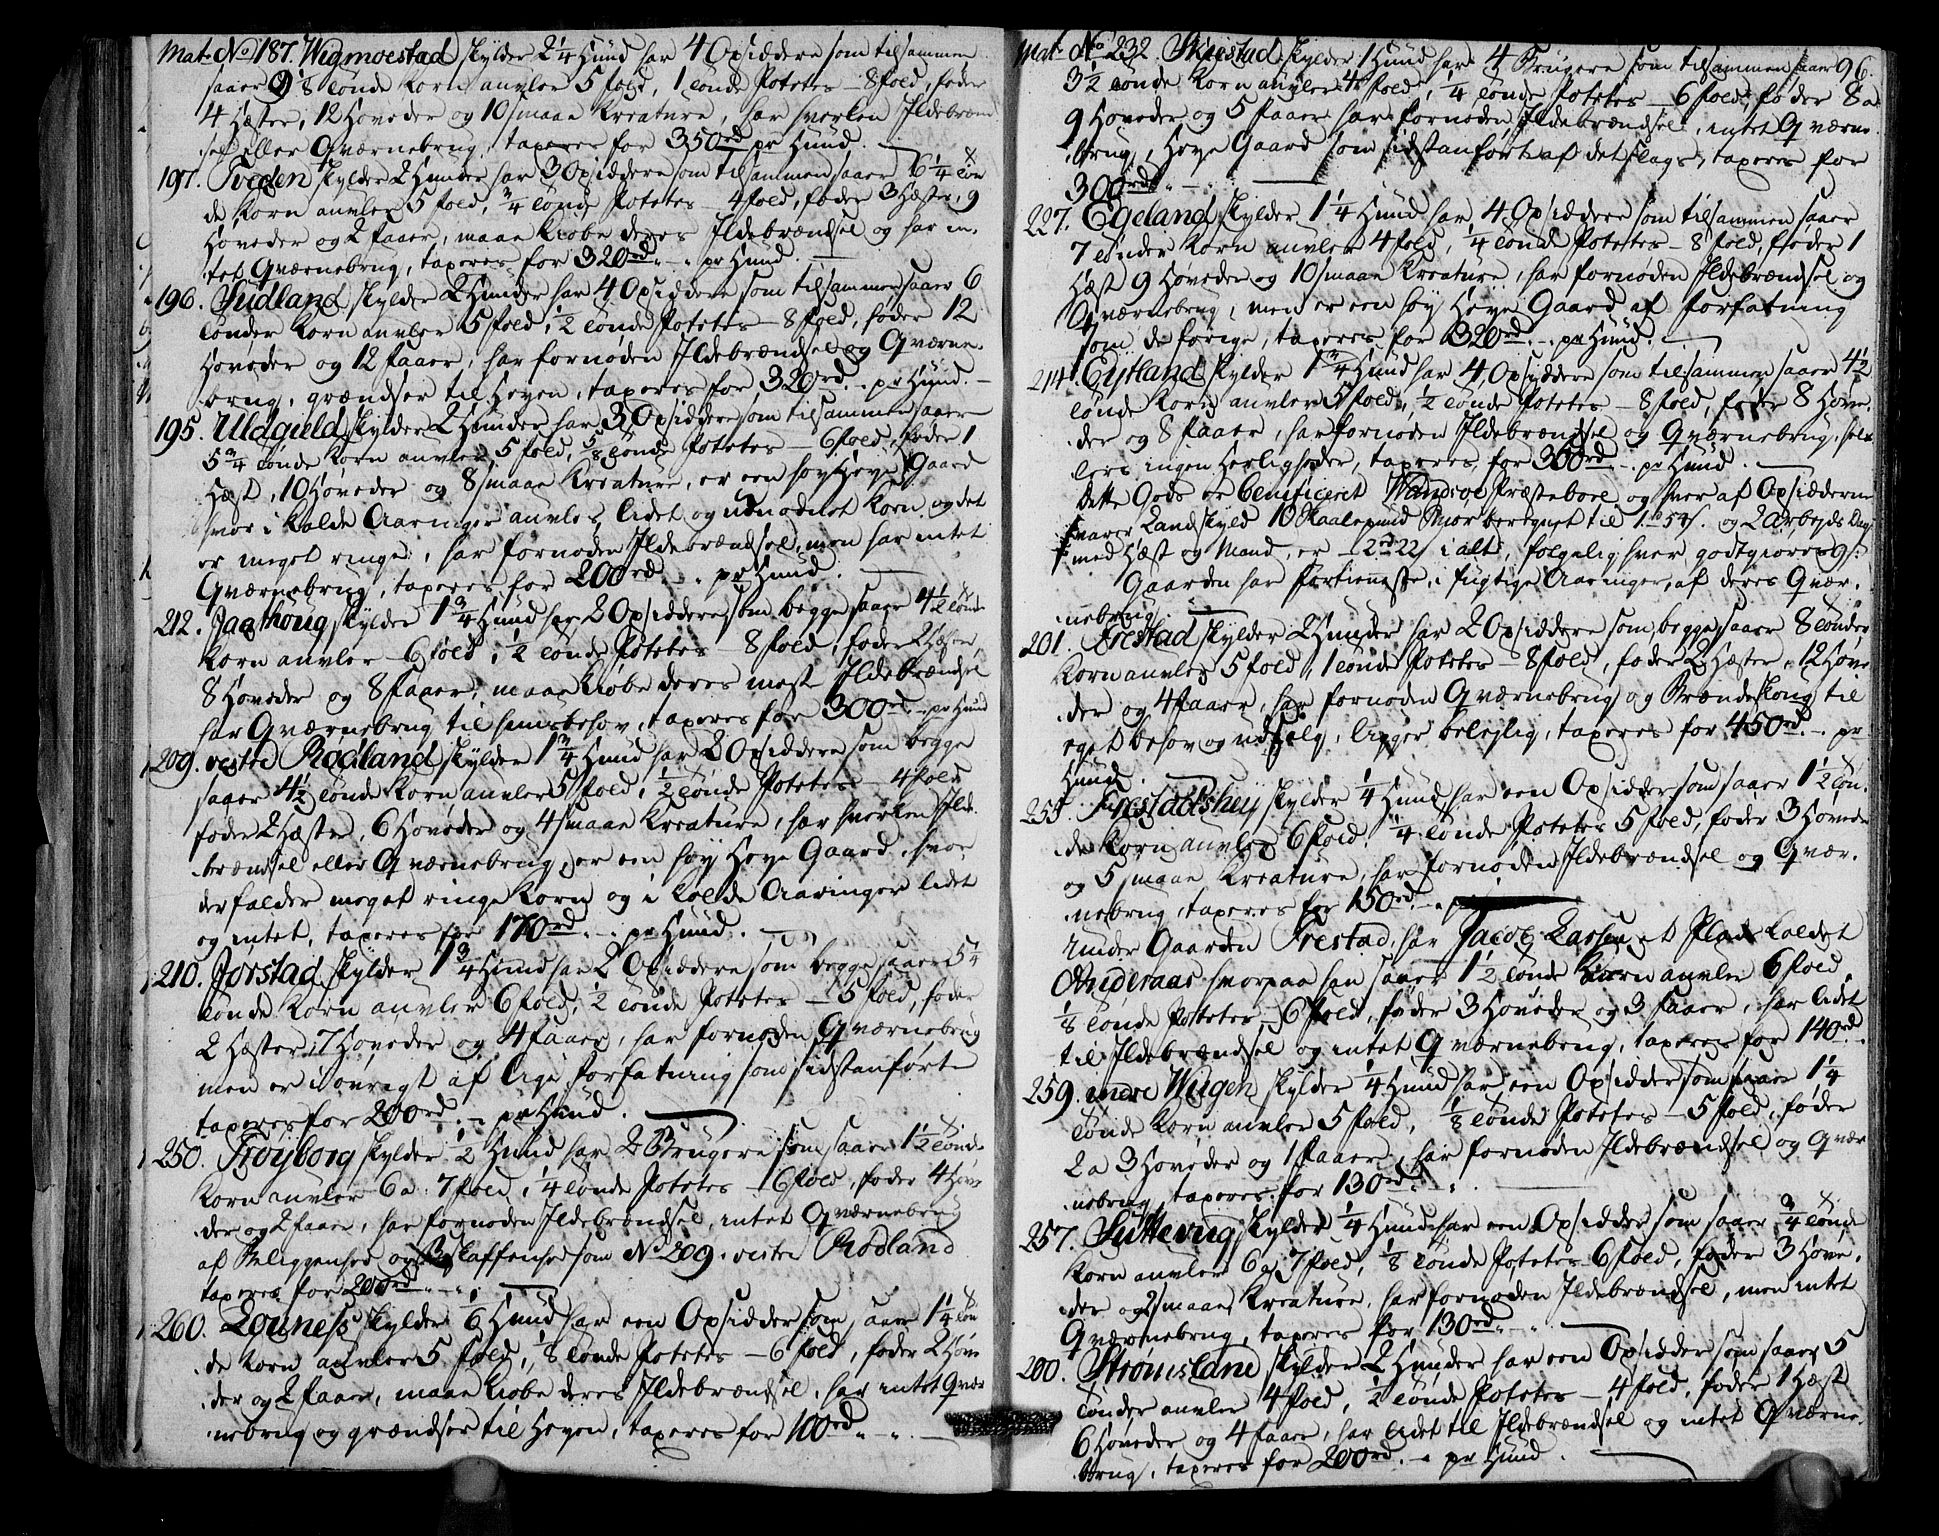 Mat No 187. Wigmoestad skylder 2 1/4 Hund har 4 Opsiddere som tilsammen
saaer 9 1/8 tønde Korn auvler 5 fold, 1 tønde Potetes – 8 fold, føder
4 Hæster, 12 Høveder og 10 smaae Kreature, har hverken Ildebrænd-
sel eller Qværnebrug, taxeres for 350 rd pr Hund.
197. Tveden skylder 2 Hunder har 3 Opsiddere som tilsammen saaer 6 1/4 tøn
de Korn auvler 5 fold, 3/4 tønde Potetes – 4 fold, føder 3 Hæster, 9
Høveder og 2 faaer, maae kiøbe deres Ildebrændsel og har in-
tet Qværnebrug, taxeres for 320 rd. pr Hund.
196. Sudland skylder 2 Hunder har 4 Opsiddere som tilsammen saaer 6
tønder Korn auvler 5 fold, 1/2 tønde Potetes – 8 fold, føder 12
Høveder og 12 faaer, har fornøden Ildebrændsel og Qværne-
brug, grændser til Heyen, taxeres for 320 rd. pr Hund.
195. Uldgield skylder 2 Hunder har 3 Opsiddere som tilsammen saaer
5 3/4 tønde Korn auvler 5 fold, 5/8 tønde Potetes – 6 fold, føder 1
Hæst, 10 Høveder og 8 smaae Kreature, er een høy Heye Gaard
hvor i kolde Aaringer auvles lidet og udmodnet Korn og det
er meget ringe, har fornøden Ildebrændsel, men har intet
Qværnebrug, taxeres for 200 rd. pr Hund.
212. Jaathoug skylder 1 3/4 Hund har 2 Opsiddere som begge saaer 4 1/2 tønde
Korn auvler – 6 fold, 1/2 tønde Potetes – 8 fold, føder 2 Hæster,
8 Høveder og 8 faaer, maae kiøbe deres meste Ildebrændsel
har Qværnebrug til huusbehov, taxeres for 300 rd. pr Hund
209. vestre Rødland skylder 1 3/4 Hund har 2 Opsiddere som begge
saaer 4 1/2 tønde Korn auvler 5 fold, 1/2 tønde Potetes – 4 fold
føder 2 Hæster, 6 Høveder og 4 smaae Kreature, har hverken Ilde-
brændsel eller Qværnebrug, er een høy Heye Gaard, hvor
der falder meget ringe Korn og i kolde Aaringer lidet
og intet, taxeres for 170 rd. pr Hund.
210. Jørstad skylder 1 3/4 Hund har 2 Opsiddere som begge saaer 5 1/4
tønde Korn auvler 6 fold, 1/2 tønde Potetes – 5 fold, føder
2 Hæster, 7 Høveder og 4 faaer, har fornøden Qværnebrug
men er i øvrigt af lige forfatning som sidstanførte
taxeres for 200 rd. pr Hund.
250. Frøyborg skylder 1/2 Hund har 2 Brugere som saaer 1 1/2 tønde
Korn auvler 6 a 7 fold, 1/4 tønde Potetes – 6 fold, føder 4 Høve
der og 2 faaer, har fornøden Ildebrændsel, intet Qværnebrug
af Beliggenhed og Beskaffenhed som No 209. vestre Rødland
taxeres for 200 rd.
260. Løgness skylder 1/6 Hund har een Opsidder som saaer 1 1/4 tøn
de Korn auvler 5 fold, 1/8 tønde Potetes – 6 fold, føder 2 Høve
der og 2 faaer, maae kiøbe deres Ildebrændsel, har intet Qvær
nebrug og grændser til Heyen, taxeres for 100 rd
Mat No 232. Skiestad skylder 1 Hund har 4 Brugere som tilsammen saaer 96.
3 1/2 tønde Korn auvler 4 fold, 1/4 tønde Potetes – 6 fold, føder 8 a
9 Høveder og 5 faaer har fornøden Ildebrændsel, intet Qværne-
brug, Heye Gaard som sidstanført af det slags, taxeres for
300 rd.
227. Egeland skylder 1 1/4 Hund har 4 Opsiddere som tilsammen saaer
7 tønder Korn auvler 4 fold, 1/4 tønde Potetes – 8 fold, føder 1
Hæst 9 Høveder og 10 smaae Kreature, har fornøden Ildebrændsel og
Qværnebrug, men er een høy Heye Gaard af forfatning
som de forige, taxeres for 320 rd. pr Hund.
214. Eytland skylder 1 3/4 Hund har 4 Opsiddere som tilsammen saaer 4 1/2
tønde Korn auvler 5 fold, 1/2 tønde Potetes – 8 fold, føder 8 Høve-
der og 8 faaer, har fornøden Ildebrændsel og Qværnebrug, hel-
lers ingen Herligheder, taxeres for 300 rd. pr Hund.
dette Gods er beneficeret Wandsøe Præsteboel og hver af Opsidderne
svarer Landskyld 10 Kaalepund Smør beregnet til 1 rd 54 s. og 2 Arbeyds Dage
med Hæst og Mand, er – 2 rd 22 s i alt, følgelig hver godtgiøres 9 s:
Gaarden har fortieneste i fugtige Aaringer, af deres Qvær-
nebrug.
201. Frestad skylder 2 Hunder har 2 Opsiddere som begge saaer 8 tønder
Korn auvler 5 fold, 1 tønde Potetes – 8 fold, føder 2 Hæster, 12 Høve
der og 4 faaer, har fornøden Qværnebrug og Brændeskoug til
eget behov og udsalg, ligger beleylig, taxeres for 450 rd. pr
Hund.
255. Frestadshey skylder 1/4 Hund har een Opsidder som saaer 1 1/2 tøn-
de Korn auvler 6 fold. 1/4 tønde Potetes 5 fold, føder 3 Høveder
og 5 smaae Kreature, har fornøden Ildebrændsel og Qvær-
nebrug, taxeres for 150 rd.
Under Gaarden Frestad har Jacob Larsen et Plads kaldet
Anderaas hvorpaa han saaer 1 1/2 tønde Korn auvler 6 fold,
1/8 tønde Potetes – 6 fold, føder 3 Høveder og 3 faaer, har lidet
til Ildebrændsel og intet Qværnebrug, taxeres for 140 rd.
259. indre Wiigen skylder 1/4 Hund har een Opsidder som saaer 1 1/4
tønde Korn auvler 5 fold, 1/8 tønde Potetes – 5 fold, føder
2 a 3 Høveder og 1 faaer, har fornøden Ildebrændsel og Qvær
nebrug, taxeres for 130 rd.
257. Suttevig skylder 1/4 Hund har een Opsidder som saaer 3/4 tønde
Korn auvler 6 a 7 fold, 1/8 tønde Potetes – 6 fold, føder 3 Høve-
der og 2 smaae Kreature, har fornøden Ildebrændsel, men intet
Qværnebrug, taxeres for 130 rd.
200. Strømsland skylder 2 Hunder har een Opsidder som saaer 5
tønder auvler 4 fold, 1/2 tønde Potetes – 4 fold, føder 1 Hæst
6 Høveder og 4 faaer, har lidet til Ildebrændsel og intet Qværne-
brug, taxeres for 200 rd. pr Hund.